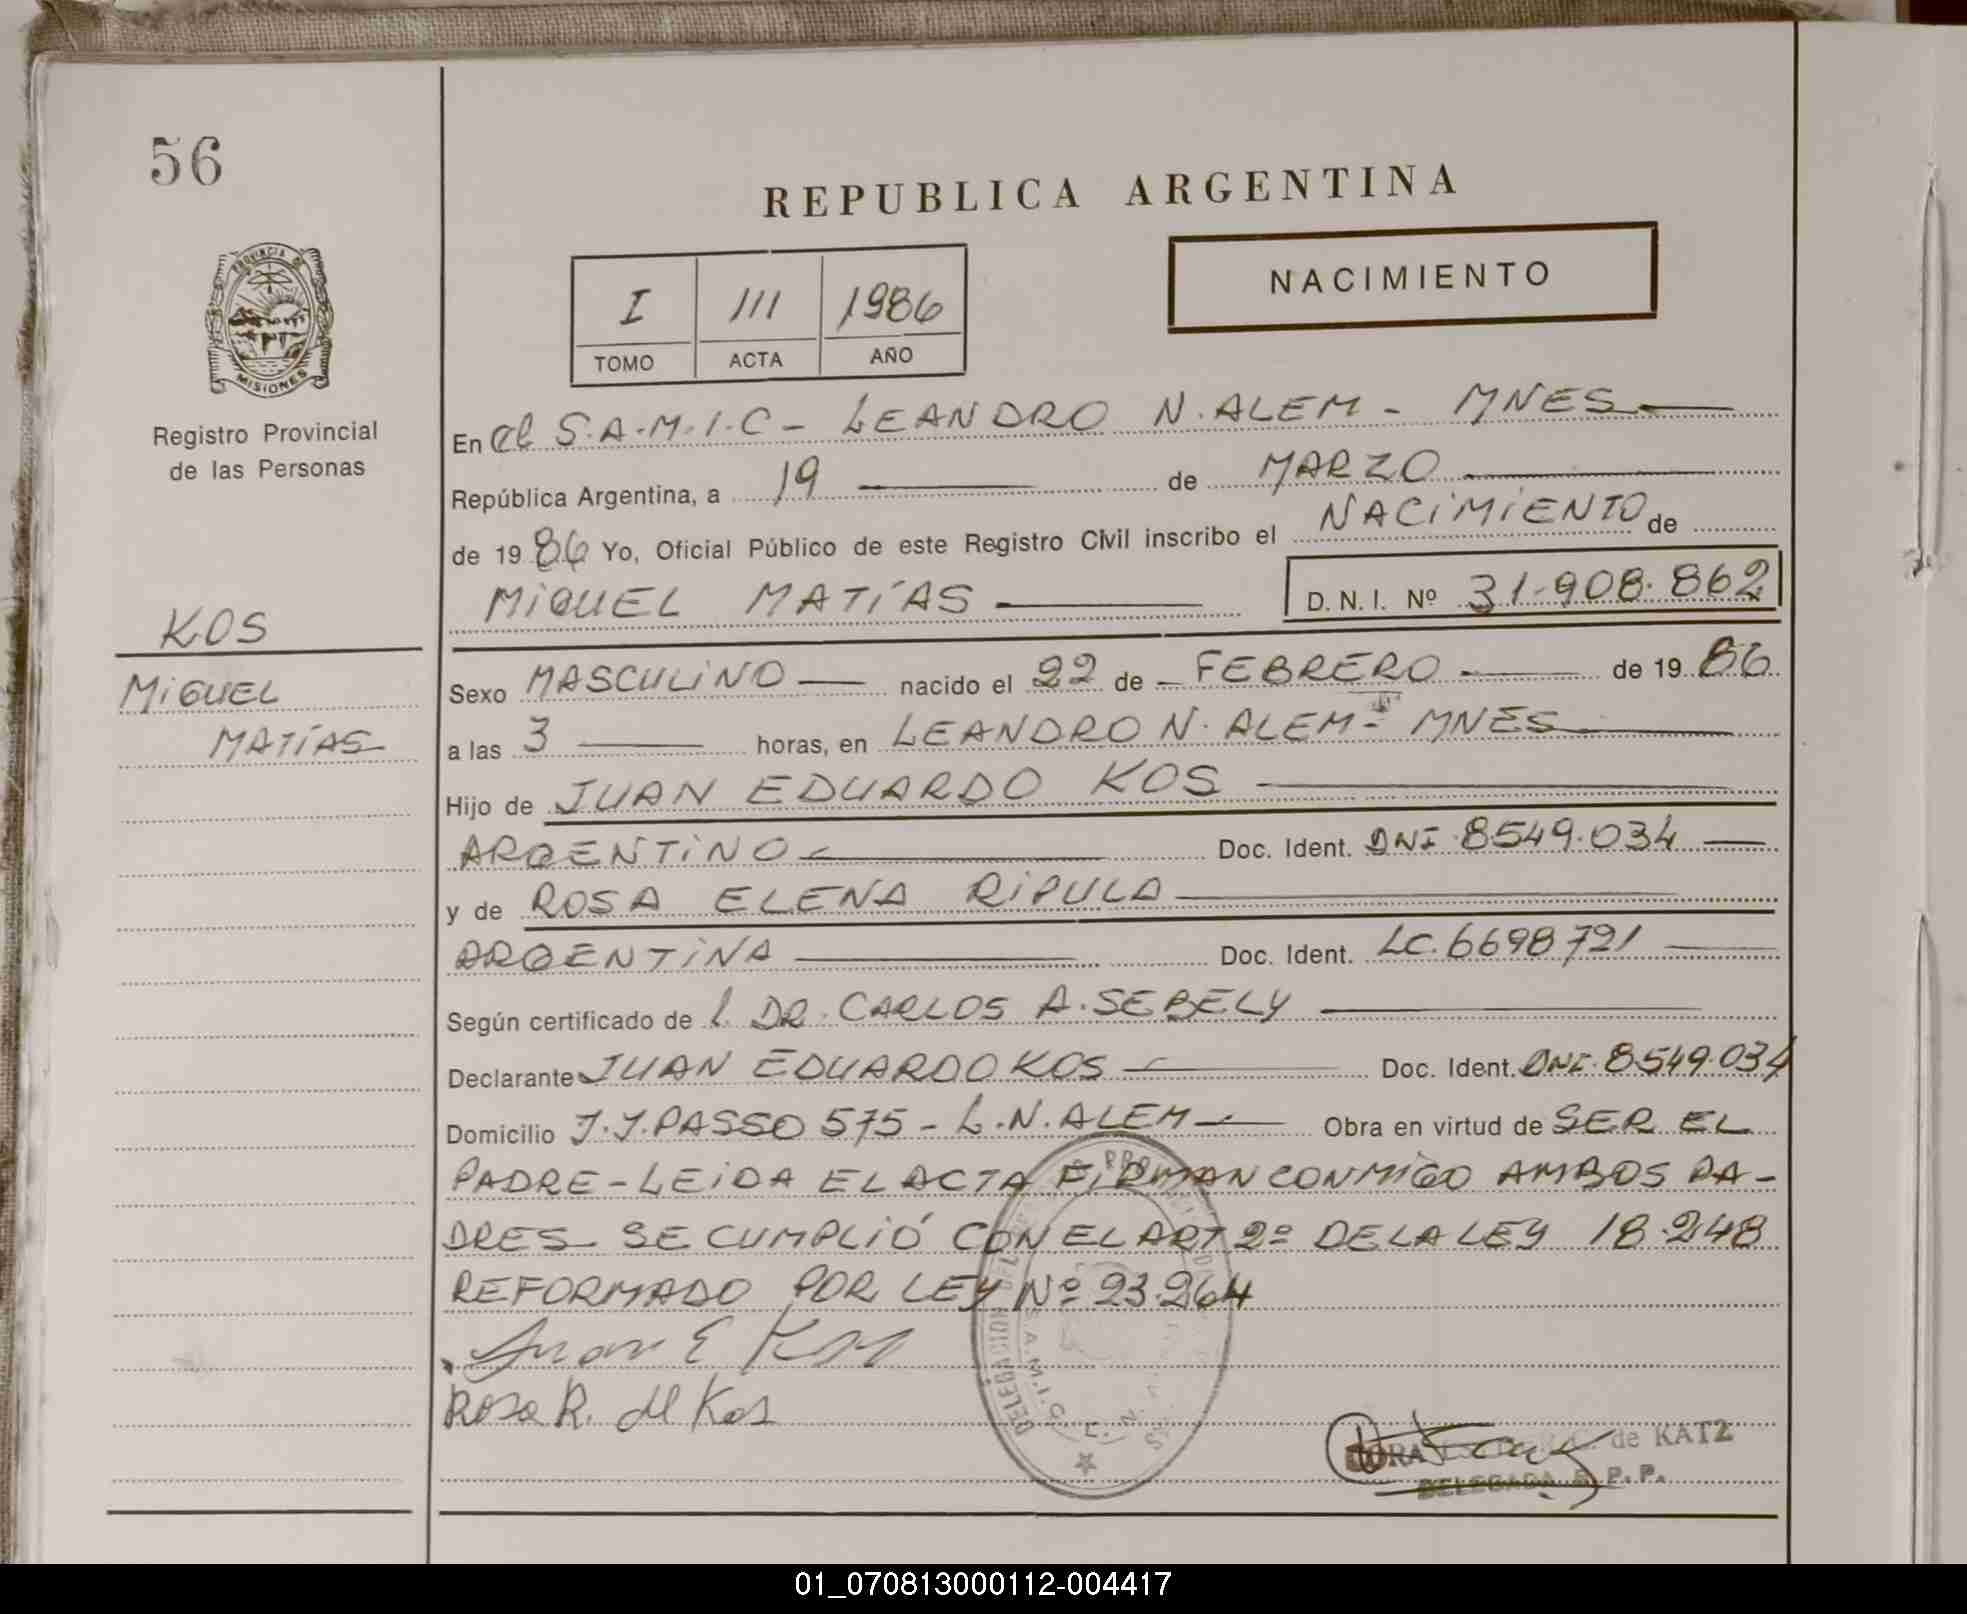 56
REPUBLICA ARGENTINA
NACIMIENTO
I 111 1986
TOMO ACTA AÑO
PROVINCIA DE
MISIONES
Registro Provincial
de las Personas
KOS
MIGUEL
MATÍAS
En el S.A.M.I.C - LEANDRO N. ALEM - MNES
República Argentina, a 19 de MARZO
de 1986 Yo, Oficial Público de este Registro Civil inscribo el NACIMIENTO de
MIGUEL MATÍAS D.N.I. Nº 31.908.862
Sexo MASCULINO nacido el 22 de FEBRERO de 1986
a las 3 horas, en LEANDRO N. ALEM - MNES
Hijo de JUAN EDUARDO KOS
ARGENTINO Doc. Ident. DNI 8.549.034
y de ROSA ELENA RIPULA
ARGENTINA Doc. Ident. LC. 6698721
Según certificado de l. DR. CARLOS A. SEBELY
Declarante JUAN EDUARDO KOS Doc. Ident. DNI. 8.549.034
Domicilio J.J. PASSO 575 - L.N. ALEM Obra en virtud de SER EL
PADRE - LEIDA EL ACTA FIRMAN CONMIGO AMBOS PA-
DRES SE CUMPLIÓ CON EL ART 2º DE LA LEY 18.248
REFORMADO POR LEY Nº 23.264
Juan E Kos
Rosa R. de Kos
DELEGACION
S.A.M.I.C. L.N.
DORA de KATZ
DELEGADA R.P.P.
01_070813000112-004417